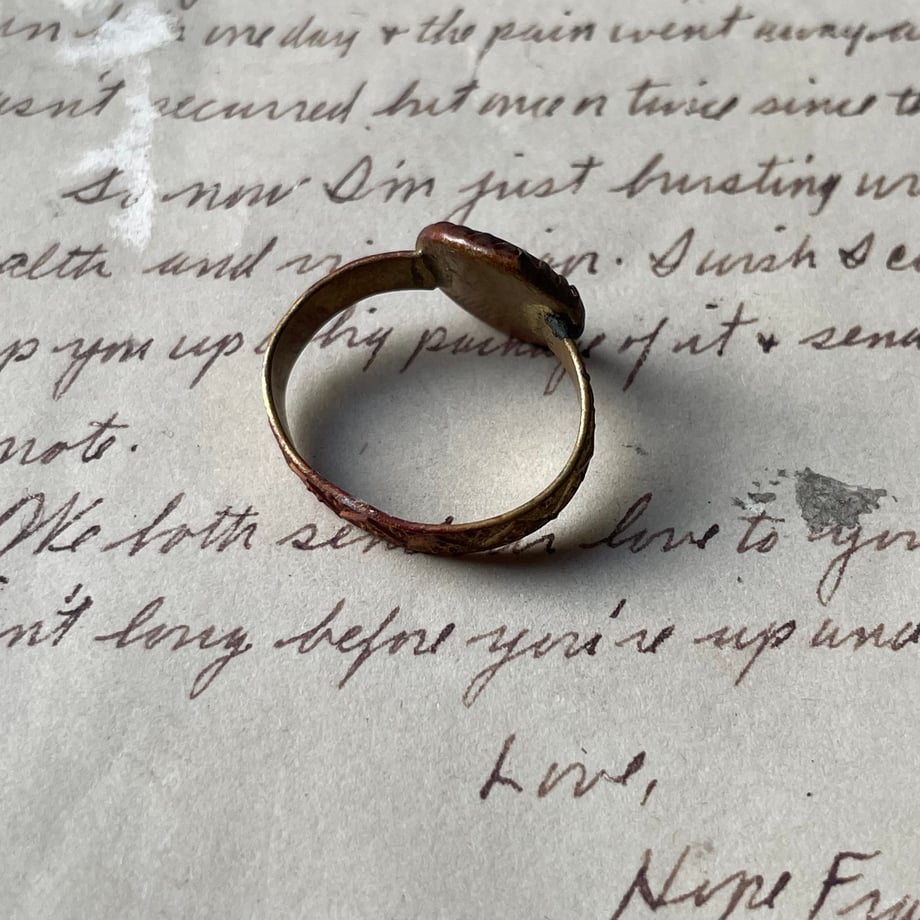 one day + the pain went away
asn't recurred but once or twice since
So now I'm just bursting
alth and I wish I
p you up a big package of it + send
note.
We both send our love to you
n't long before you're up and
Love,
Hope